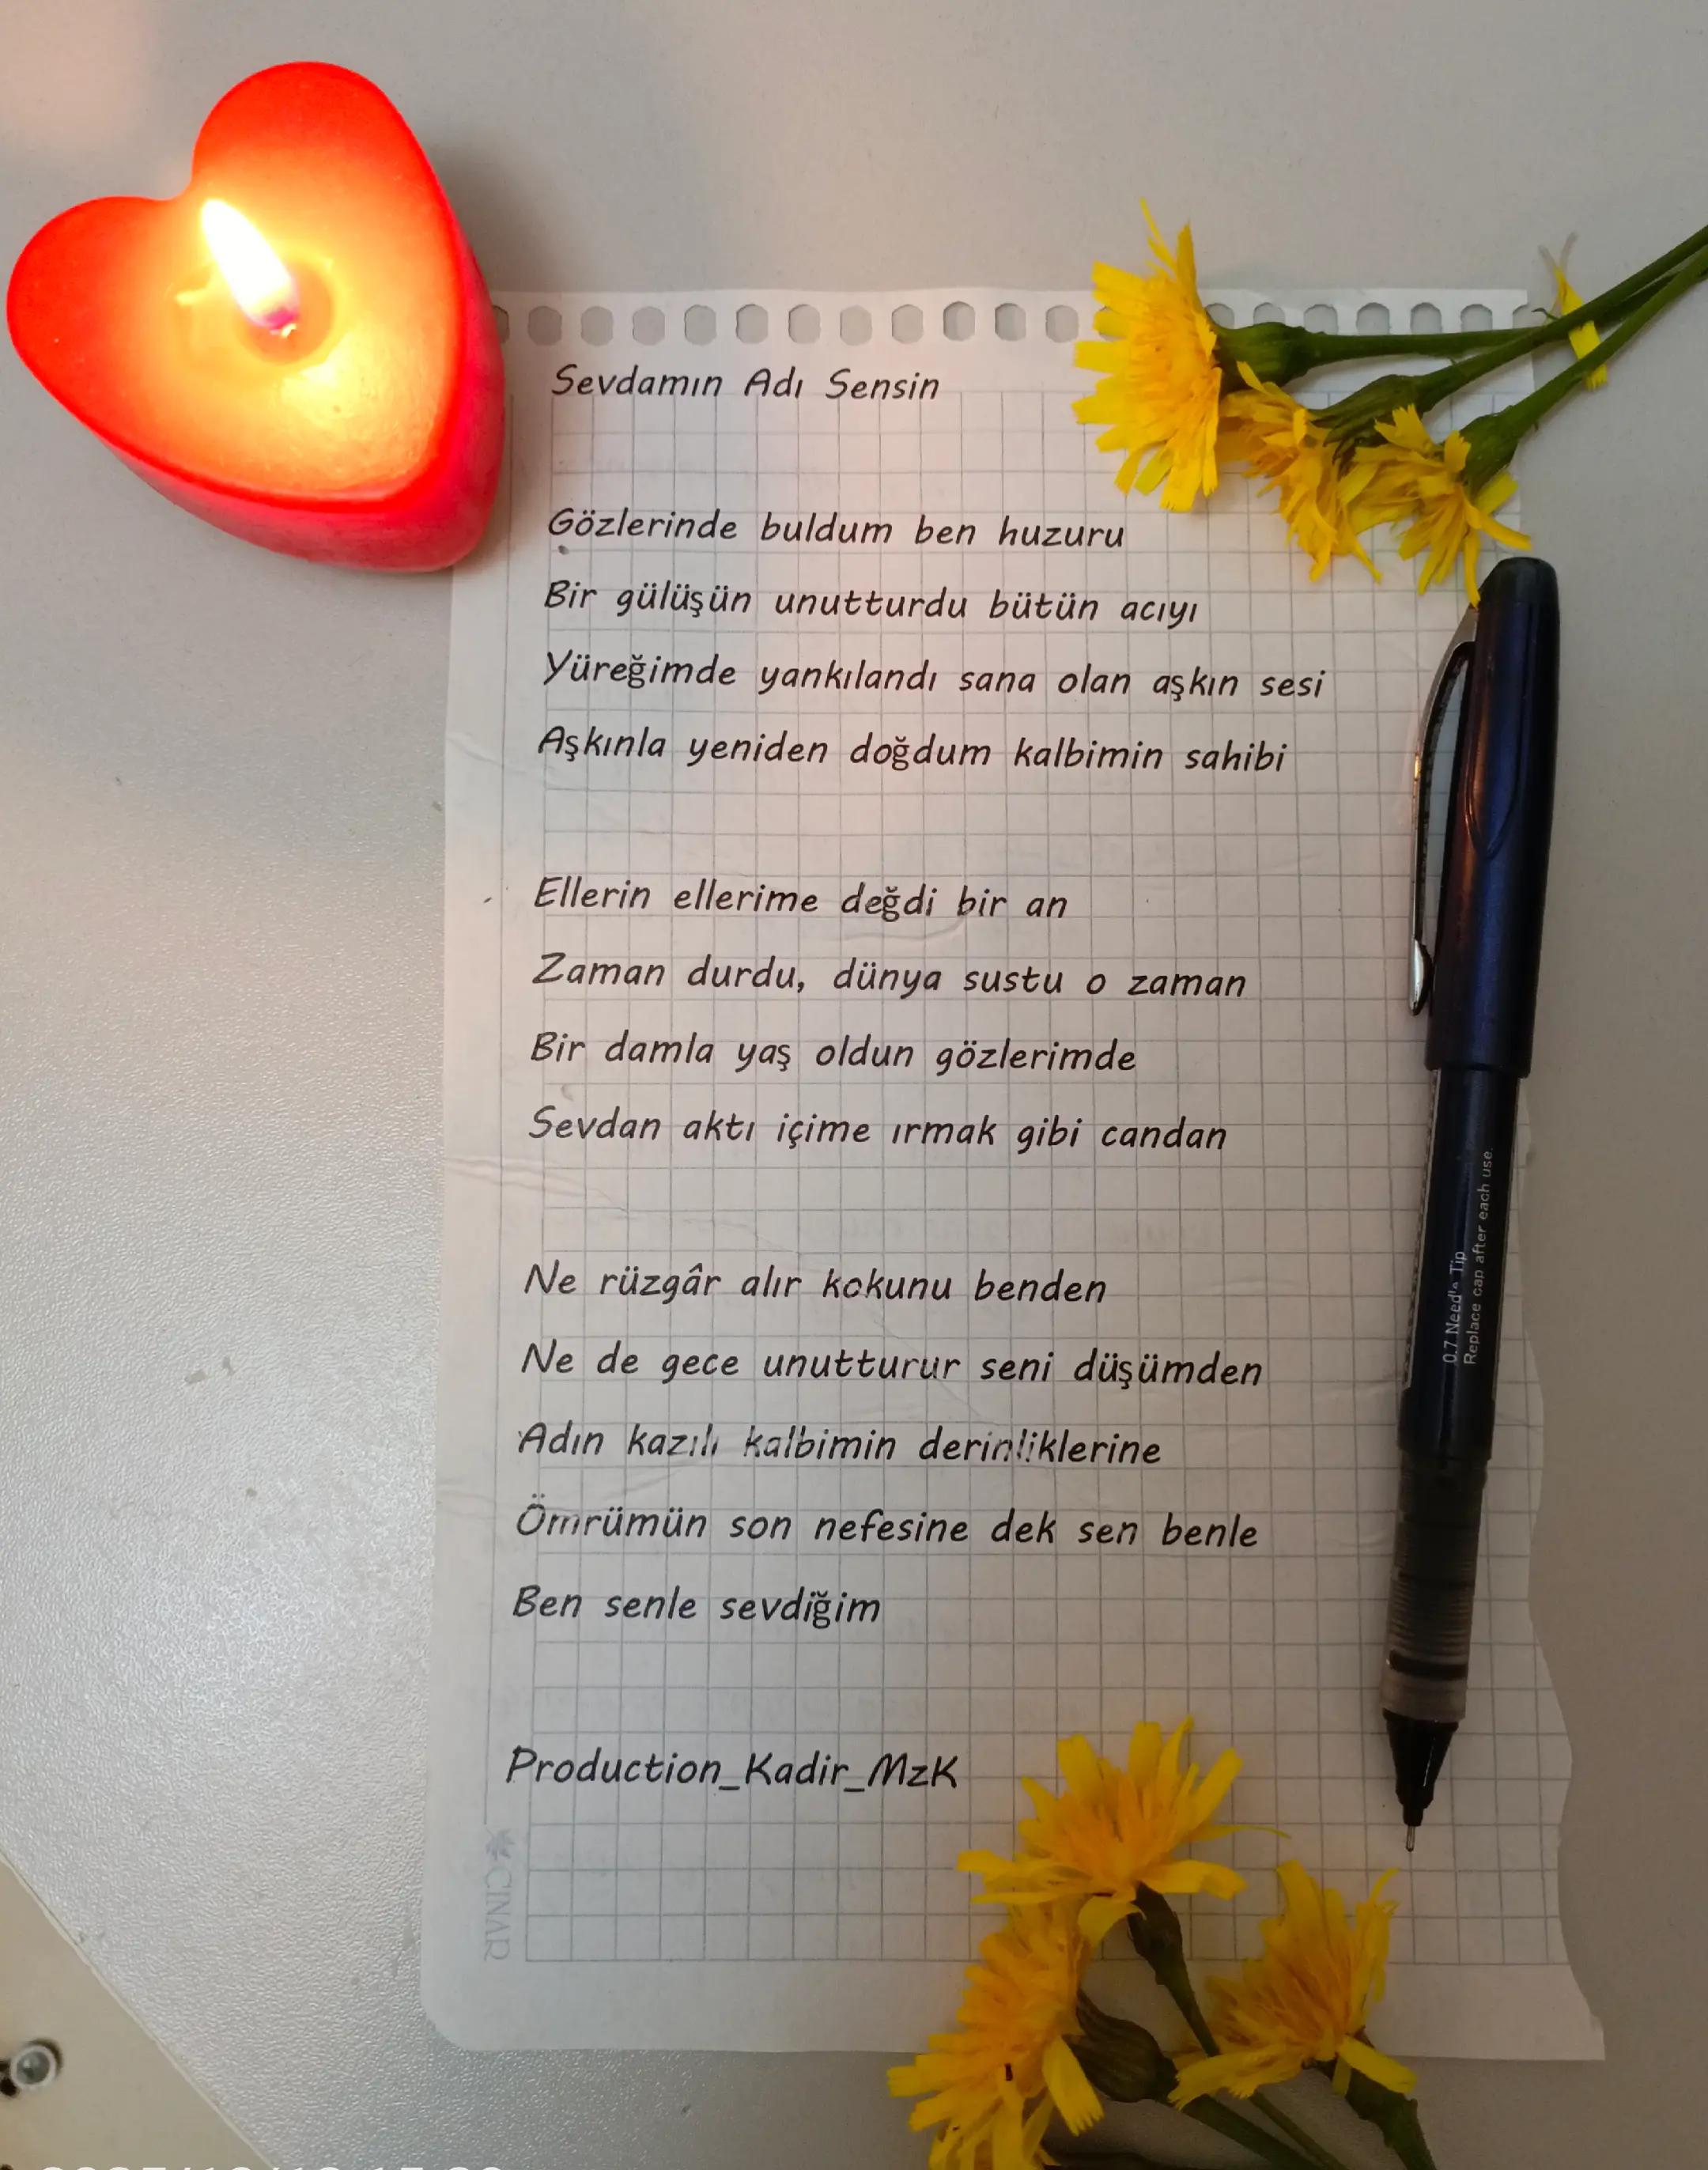 Sevdamın Adı Sensin
Gözlerinde buldum ben huzuru
Bir gülüşün unutturdu bütün acıyı
Yüreğimde yankılandı sana olan aşkın sesi
Aşkınla yeniden doğdum kalbimin sahibi
Ellerin ellerime değdi bir an
Zaman durdu, dünya sustu o zaman
Bir damla yaş oldun gözlerimde
Sevdan aktı içime ırmak gibi candan
Ne rüzgâr alır kokunu benden
Ne de gece unutturur seni düşümden
Adın kazılı kalbimin derinliklerine
Ömrümün son nefesine dek sen benle
Ben senle sevdiğim
Production_Kadir_MzK
ÇINAR
0.7 Needle Tip
Replace cap after each use.